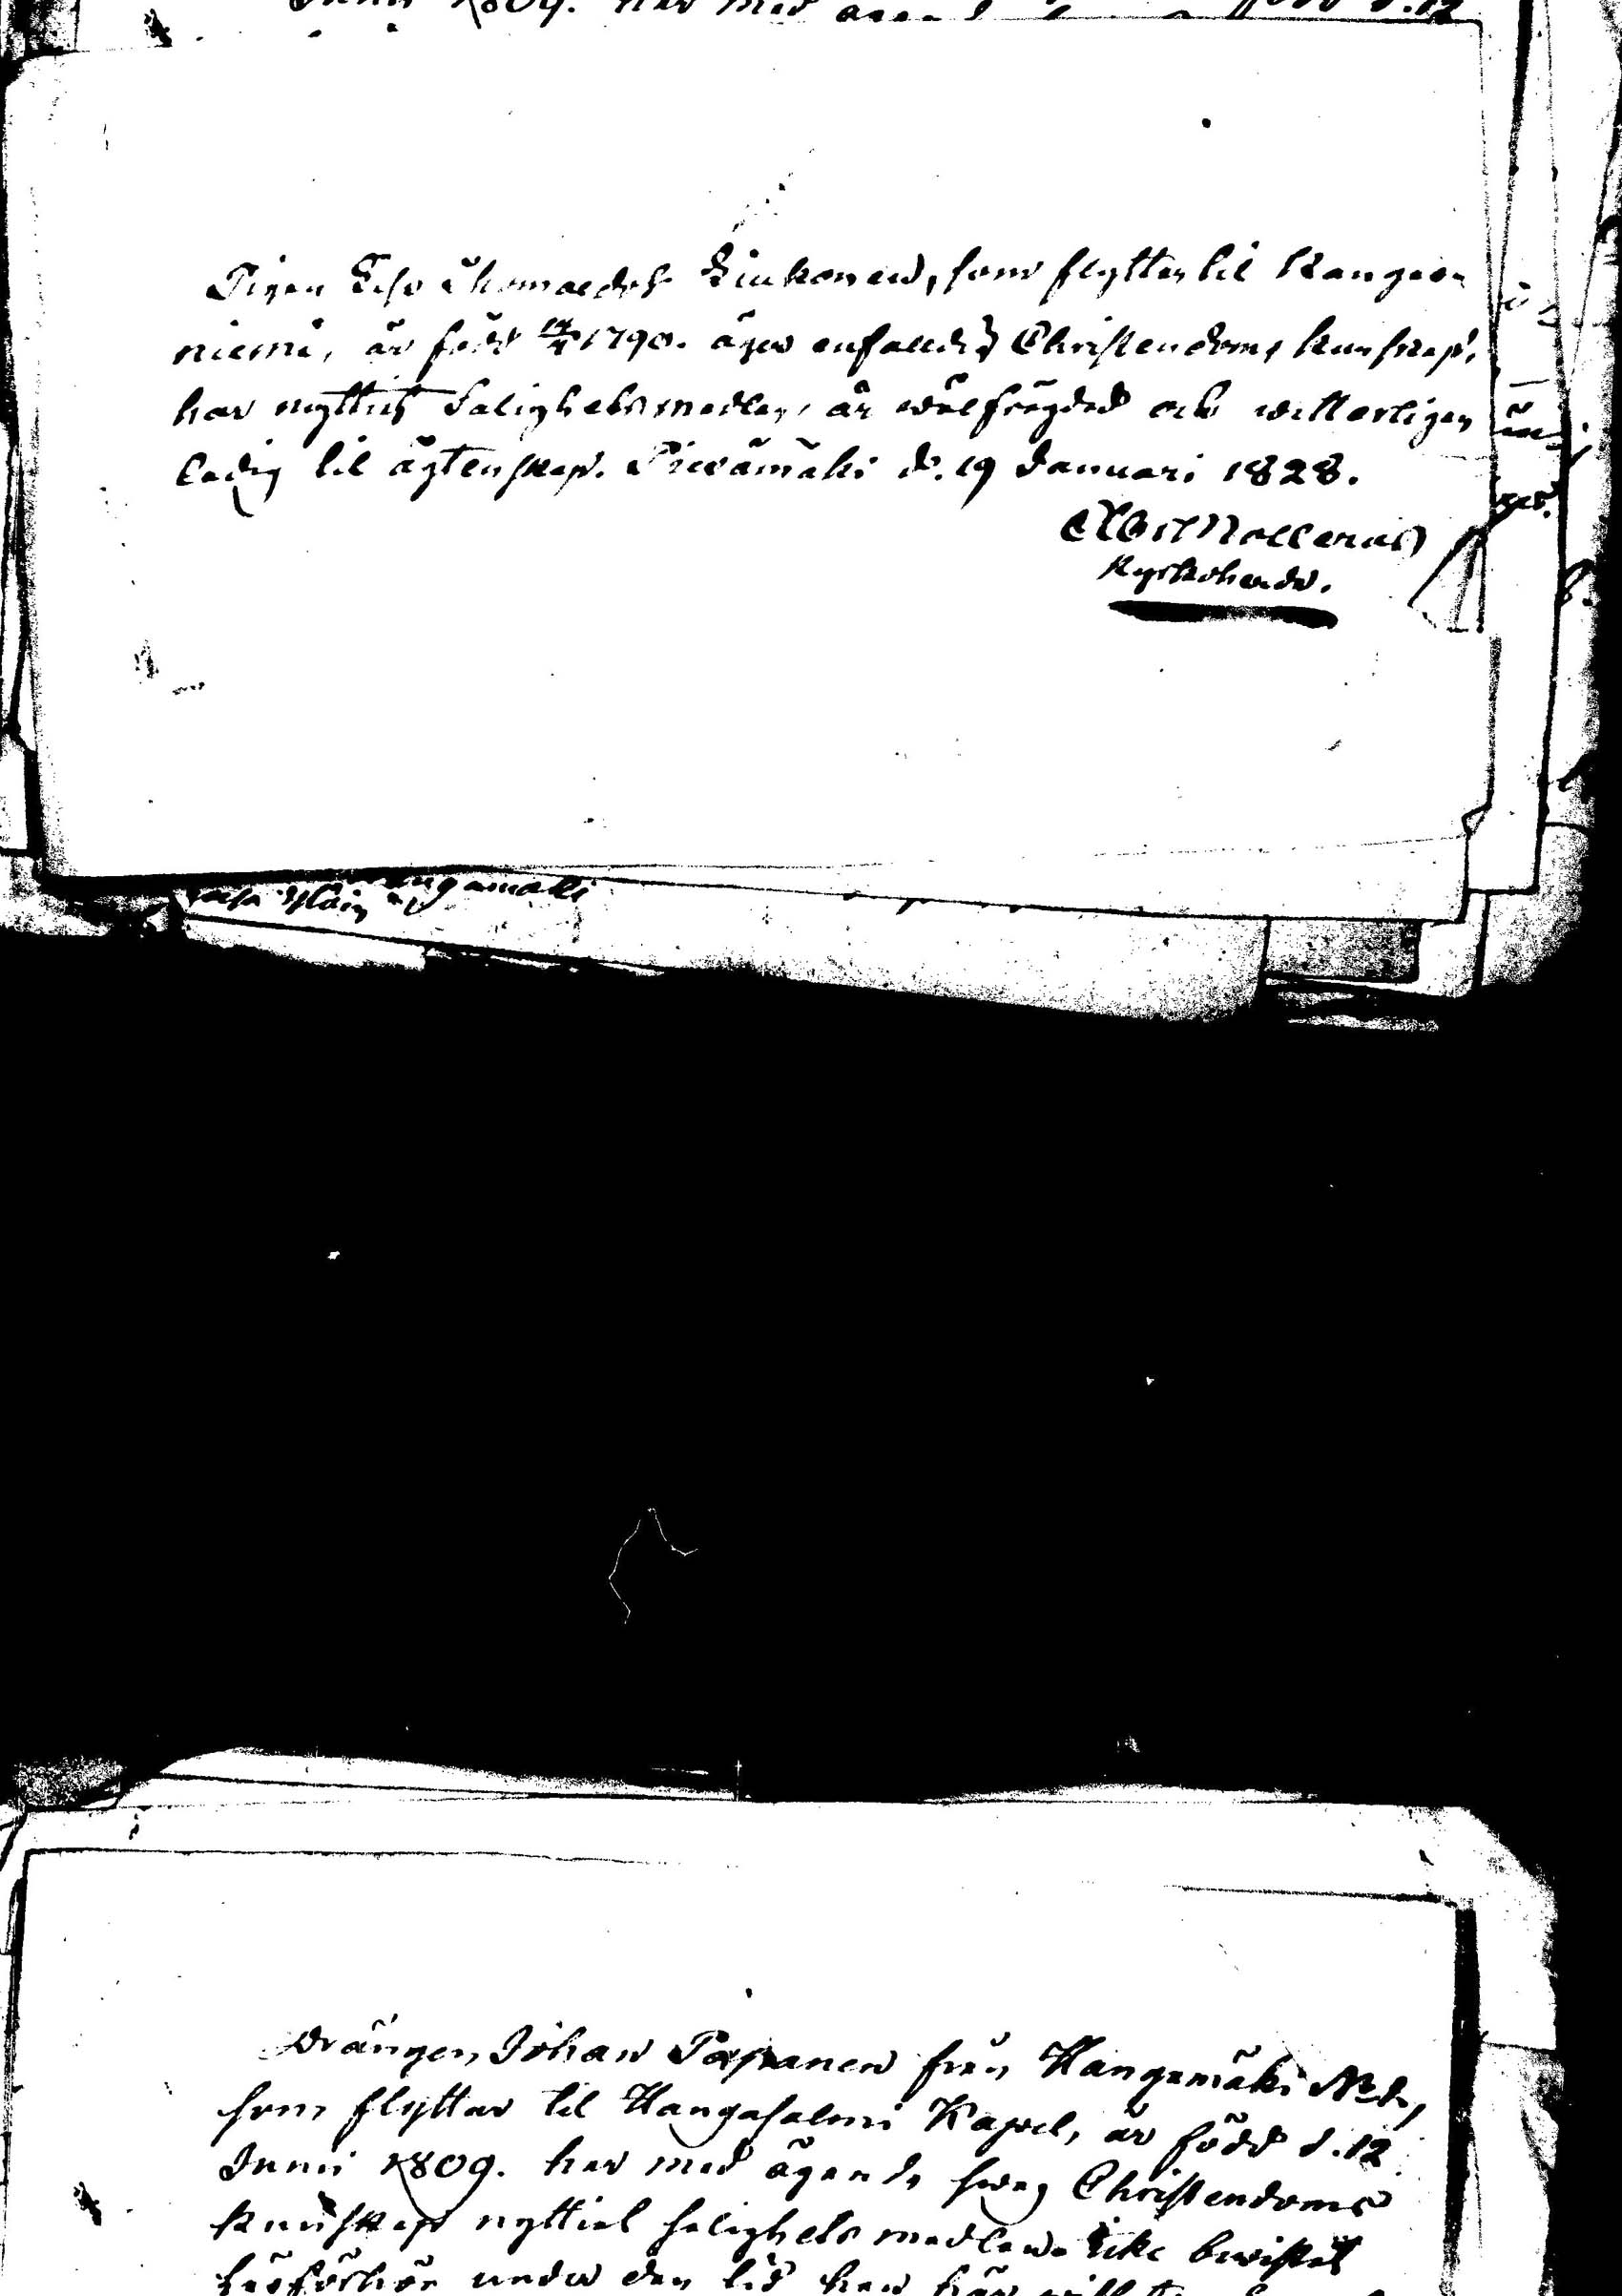 Junii 1809. har med ägan
Pigan Thomaedotr Kinkonen, som flyttar til Kangas
niemi, är född 1790. äger enfaldig Christendoms kunskap,
har nyttjat Salighetsmedlen, är wälfrägdad och witterligen
ledig til ägtenskap. Piexämäki d. 19 Januari 1828.
Kyrkoherde.
Drängen Johan Papanen från Kangamäki No 2,
som flyttar til Kangasalmi Kapel, är född d. 12
Junii 1809. har med ägande swag Christendoms
kunskap nyttiat salighets medlen. icke bewistat
läsförhör under den tid han här